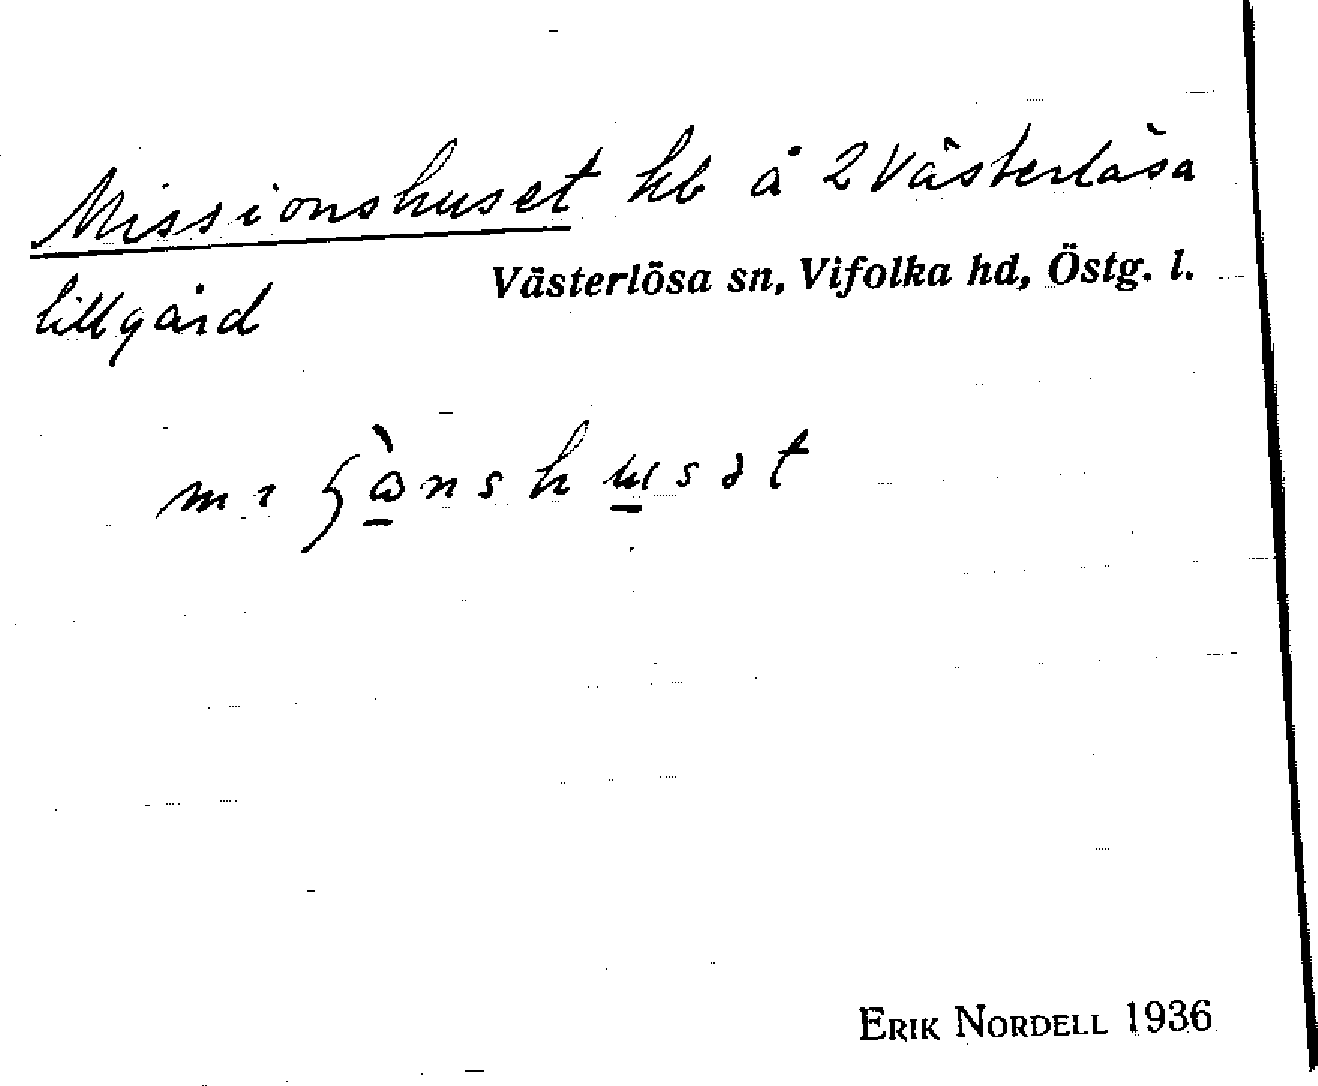 Missionshuset hb å 2 Västerlösa
Västerlösa sn, Vifolka hd, Östg. l.
lillgård
ERIK NORDELL 1936